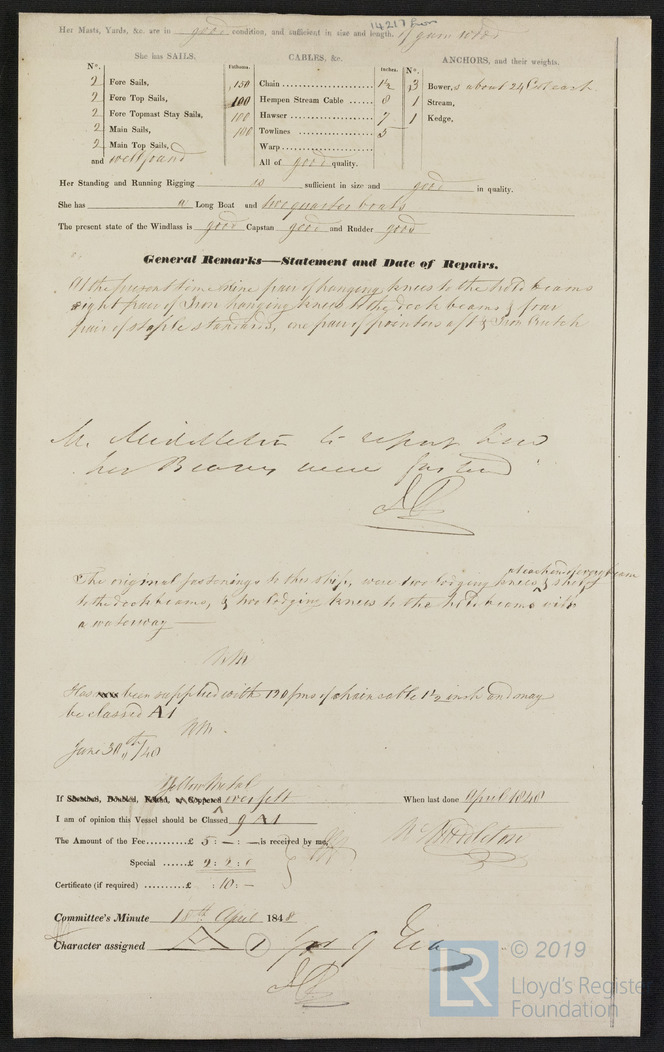 14217 Iron
Her Masts, Yards, &c. are in good condition, and sufficient in size and length.
She has SAILS.
CABLES, &c.
ANCHORS, and their weights.
No. Fathoms. Inches. No.
2 Fore Sails, 150 Chain 1½ 3 Bowers about 24 Cwt each
2 Fore Top Sails, 100 Hempen Stream Cable 8 1 Stream,
2 Fore Topmast Stay Sails, 100 Hawser 7 1 Kedge,
2 Main Sails, 100 Towlines 5
2 Main Top Sails, Warp
and well found All of good quality.
Her Standing and Running Rigging is sufficient in size and good in quality.
She has a Long Boat and two quarter boats
The present state of the Windlass is good Capstan good and Rudder good
General Remarks—Statement and Date of Repairs.
At the present time nine pair of hanging knees to the hold beams
eight pair of Iron hanging knees to the deck beams & four
pair of staple standards, one pair of pointers aft & Iron Crutch
Mr. Middleton to report how
her Beams were fastened
The original fastenings to this ship, were two lodging knees &
to the deck beams, & two lodging knees to the hold beams with
a waterway
WM
Has been supplied with 120 fms of chain cable 1½ inch and may
be classed A1
WM.
June 30th/48
Yellow Metal
If Sheathed, Doubled, Felted, or Coppered over felt When last done April 1848
I am of opinion this Vessel should be Classed 9 A1
The Amount of the Fee £ 5 : - : - is received by me,
W Middleton
Special £ 2 : 2 : 0
Certificate (if required) £ : 10 : -
Committee's Minute 18th April 1848
Character assigned A 1 for 9
© 2019
LR Lloyd's Register
Foundation